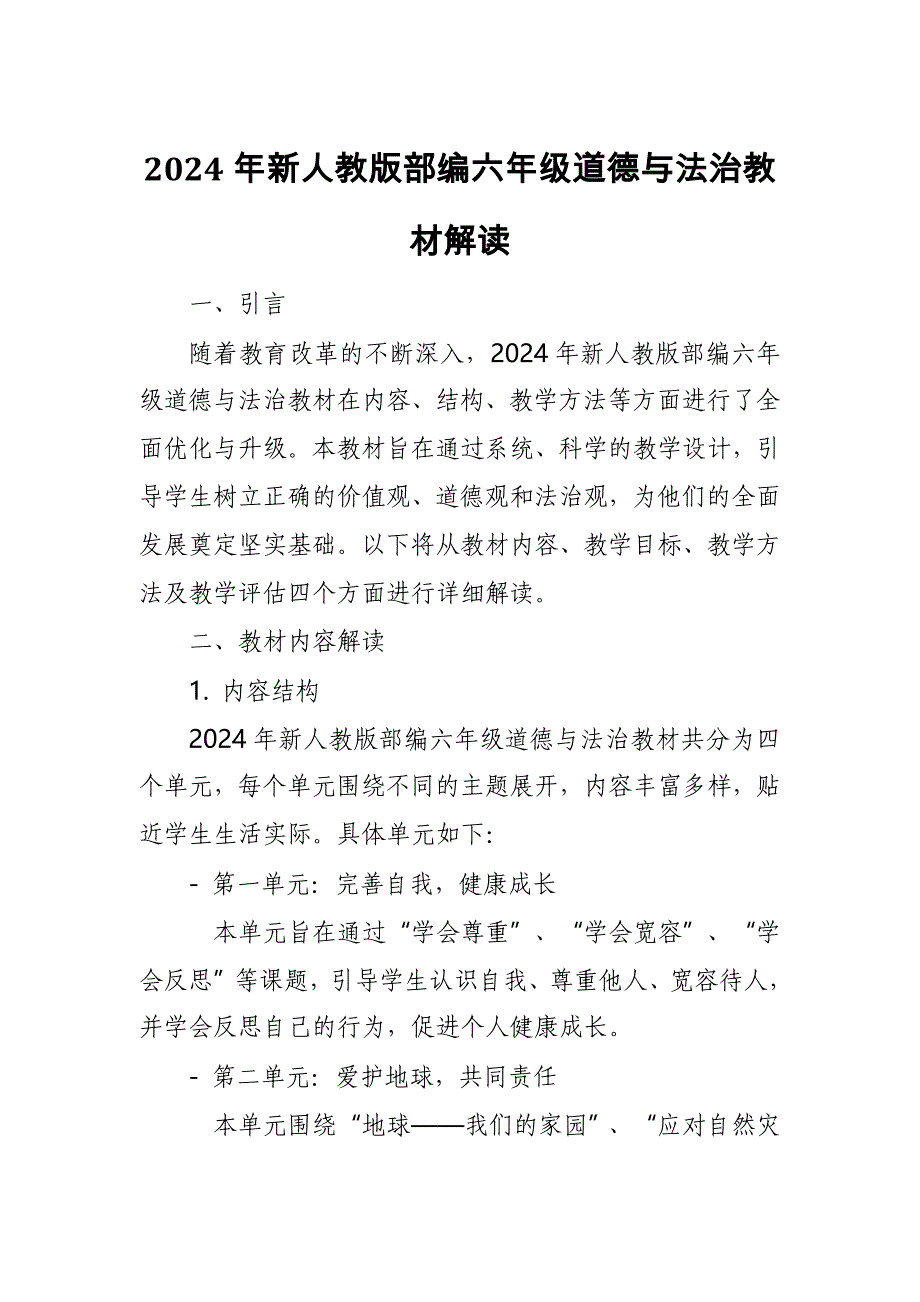 2024 年新人教版部编六年级道德与法治教
材解读
一、引言
随着教育改革的不断深入，2024 年新人教版部编六年
级道德与法治教材在内容、结构、教学方法等方面进行了全
面优化与升级。本教材旨在通过系统、科学的教学设计，引
导学生树立正确的价值观、道德观和法治观，为他们的全面
发展奠定坚实基础。以下将从教材内容、教学目标、教学方
法及教学评估四个方面进行详细解读。
二、教材内容解读
1. 内容结构
2024 年新人教版部编六年级道德与法治教材共分为四
个单元，每个单元围绕不同的主题展开，内容丰富多样，贴
近学生生活实际。具体单元如下：
- 第一单元：完善自我，健康成长
本单元旨在通过“学会尊重”、“学会宽容”、“学
会反思”等课题，引导学生认识自我、尊重他人、宽容待人，
并学会反思自己的行为，促进个人健康成长。
- 第二单元：爱护地球，共同责任
本单元围绕“地球——我们的家园”、“应对自然灾